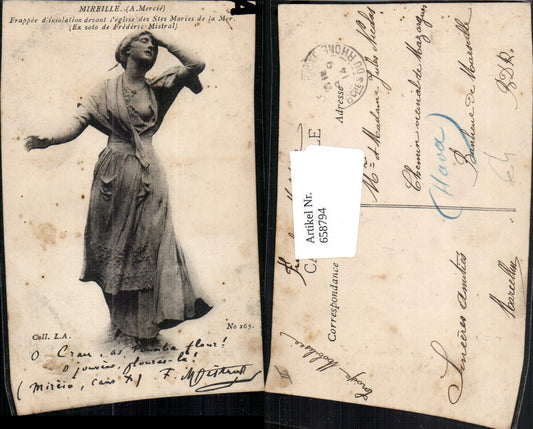 MIREILLE. (A. Mercié)
Frappée d'insolation devant l'église des Stes Maries de la Mer.
(Ex voto de Frédéric Mistral)
Coll. L.A.
No 265.
O Crau, as toumba flour!
O jouvènt, plouras-la!
(Mirèio, cant X) F. Mistral
Artikel Nr.
658794
Correspondance
Adresse
Mr et Madame Jules
Chemin vicinal de Mazargues
Banlieue de Marseille
BDR.
Sincères amitiés
Marcellin